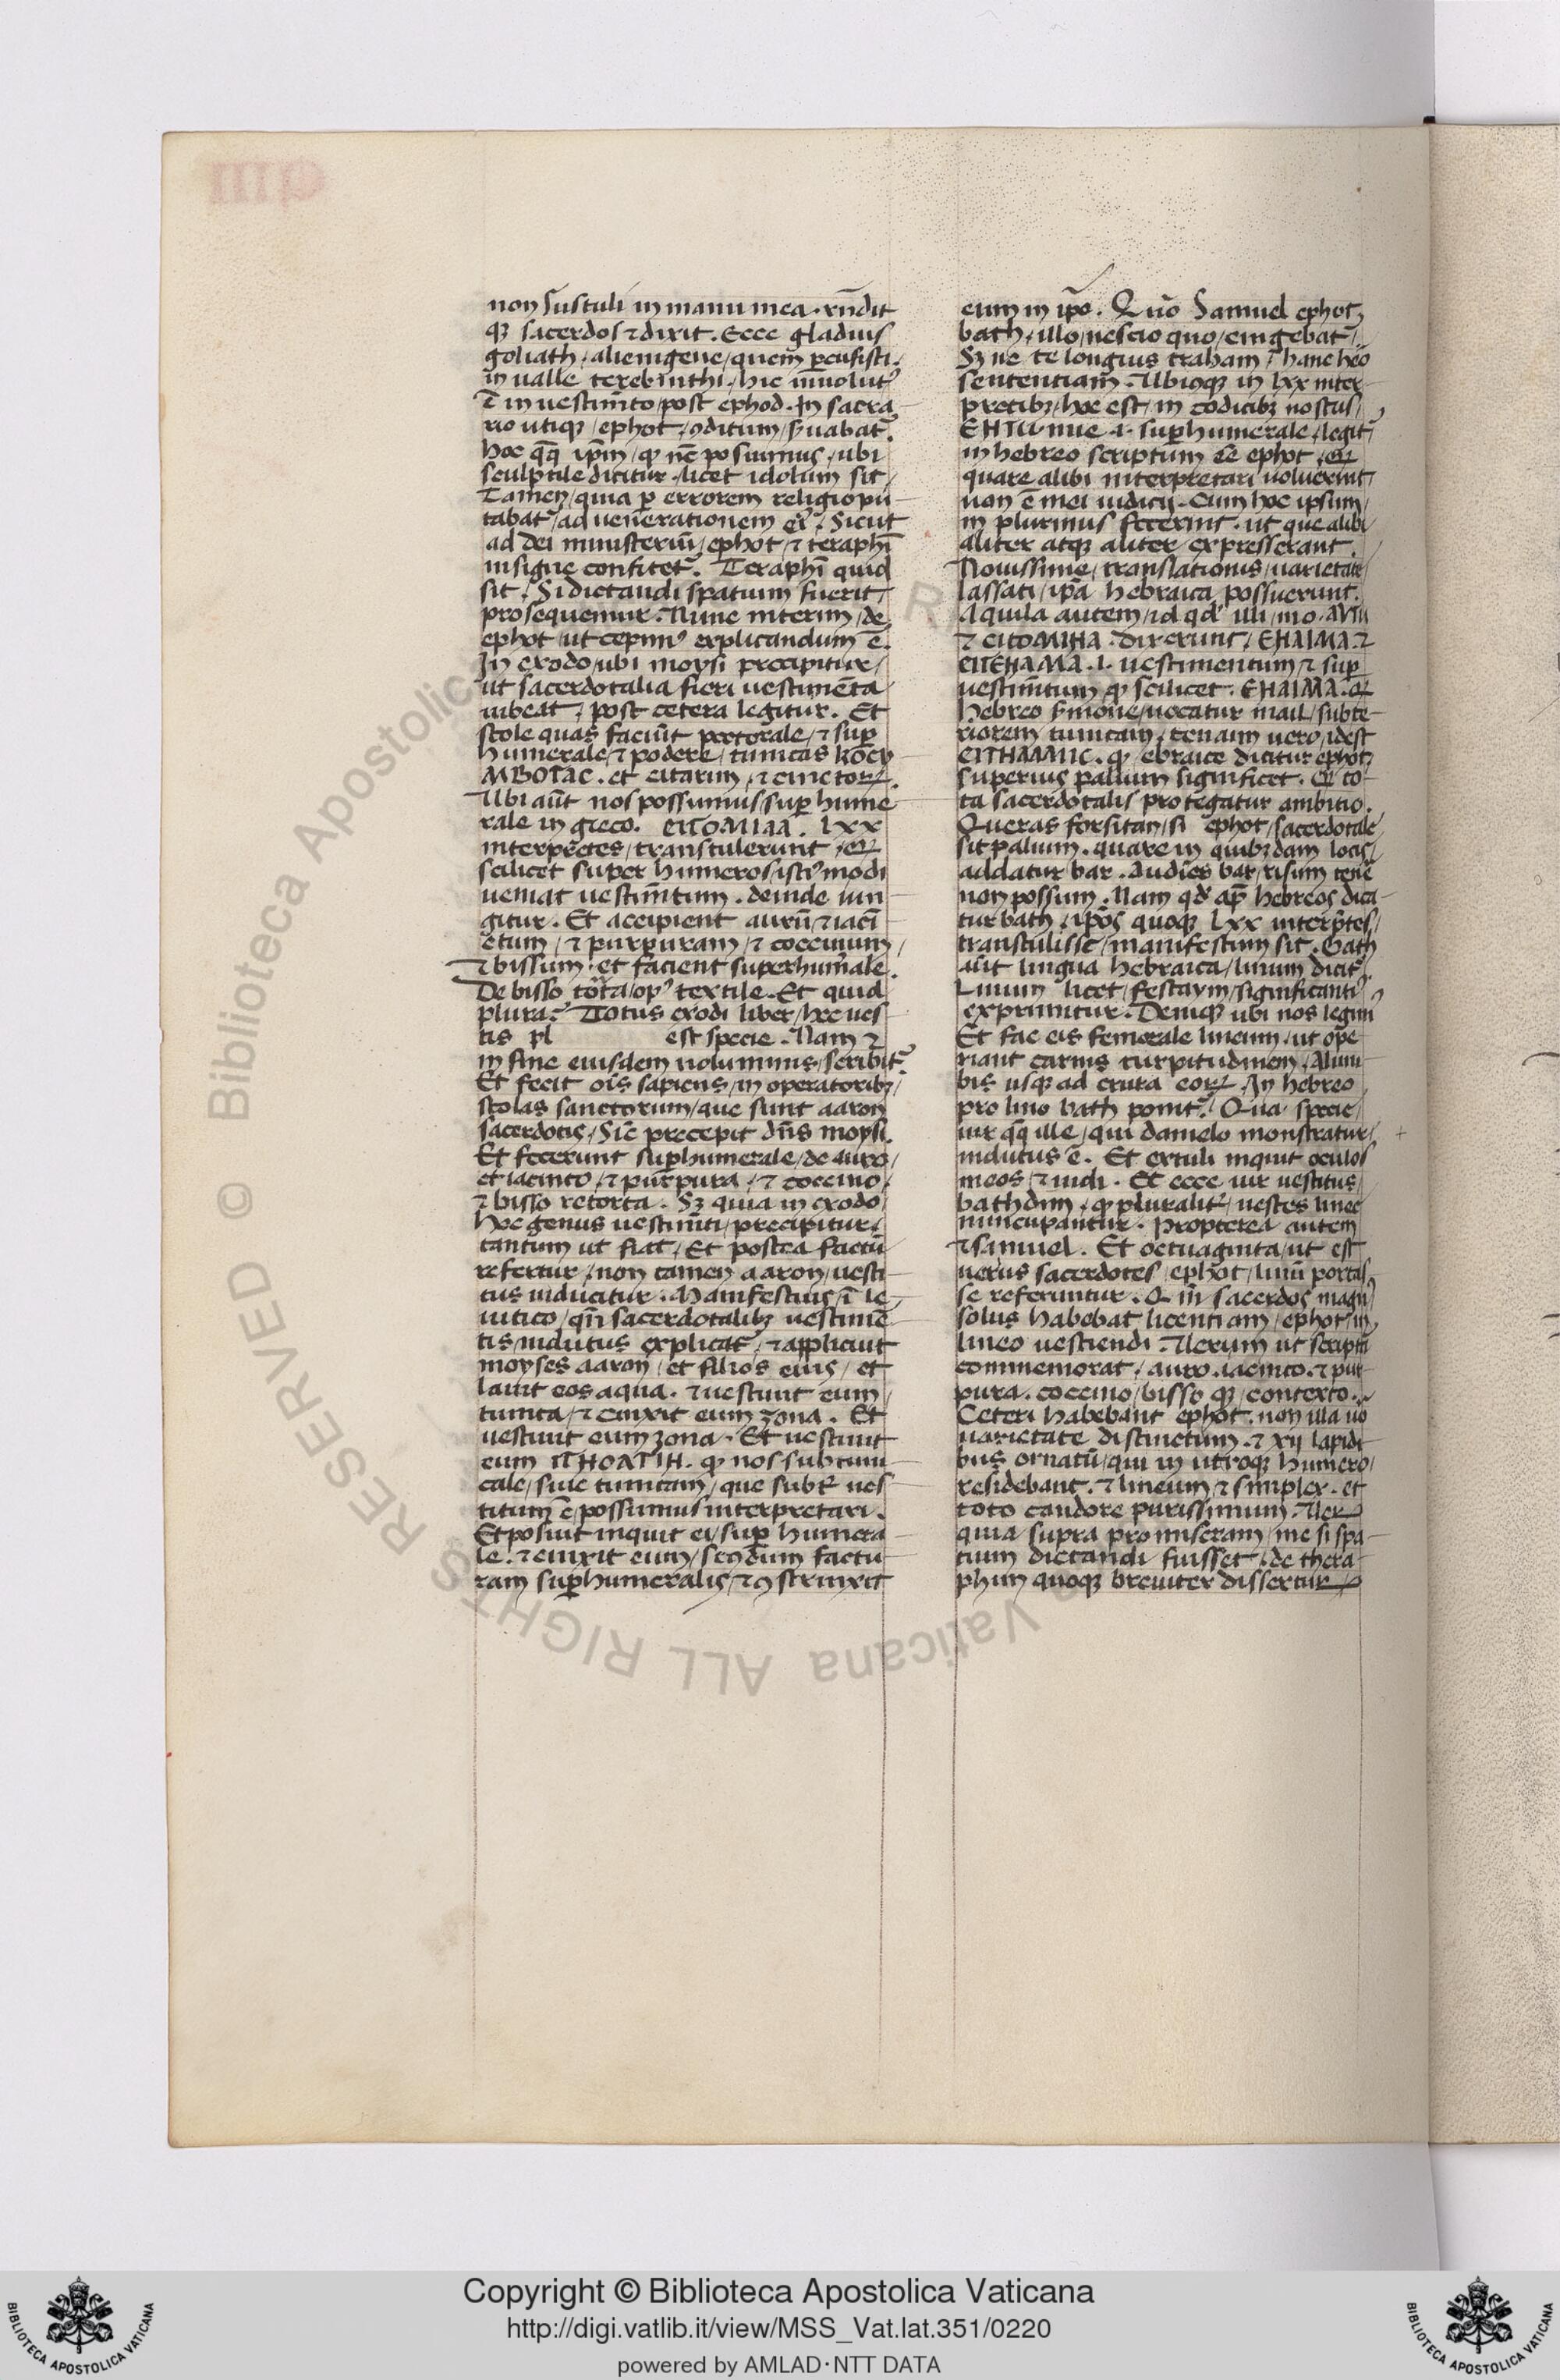 non sustuli in manu mea. rn̄dit
qꝫ sacerdos ⁊ dixit. Ecce gladius
goliath / alienigene / quem ꝑcusisti.
in ualle terebinthi / hic inuolutꝰ
ē in uestim̄to / post ephod. In sacra
rio utiqꝫ / ephot / ꝯditum / ẜuabat᷑.
sculptile dicitur / licet idolum sit /
Tamen / quia ꝑ errorem religio pu
tabat᷑ / ad uenerationem Sicut
ad dei ministeriū / ephot / ⁊ teraphī
insigne confitet᷑. Teraphī quid
sit / Si dictandi spatium fuerit /
prosequemur. Nunc interim / de
ephot / ut cepimꝰ explicandum ē.
In exodo / ubi moysi precipitur /
ut sacerdotalia fieri uestimēta
iubeat / post cetera legitur. Et
stole quas faciūt pectorale / ⁊ suꝑ
humerale / ⁊ podere / tunicas KOCY
MBOTAC. et citarim / ⁊ cinctorꝝ.
Ubi aūt nos possumus / suꝑ hume
rale in greco. EΠOMIAA. lxx
interpretes / transtulerunt
scilicet super humeros / istꝰmodi
ueniat uestim̄tum. deinde iun
gitur. Et accipient aurū / ⁊ iacī
ctum / ⁊ purpuram / ⁊ coccinum /
⁊ bissum / et facient superhum̄ale.
De bisso tor̄ta / opꝰ textile. Et quid
plura? Totus exodi liber / hec ues
tis pl est specie. Nam ⁊
in fine eiusdem uoluminis / scribit᷑.
Et fecit oīs sapiens / in operatoribꝫ /
stolas sanctorum / que sunt aaron
sacerdotis / Sic̄ precepit dn̄s moysi.
Et fecerunt suꝑhumerale / de auro /
et iacincto / ⁊ purpura / ⁊ coccino /
⁊ bisso retorta. Sꝫ quia in exodo /
hoc genus uestim̄ti / precipitur /
tantum ut fiat / Et postea factū
refertur / non tamen aaron / uesti
tus inducitur. Manifestius / ī le
uitico / qn̄ sacerdotalibꝫ uestimē
tis / indutus explicat᷑ / ⁊ applicuit
moyses aaron / et filios eius / et
lauit eos aqua. ⁊ uestiuit eum
tunica / ⁊ cinxit eum zona. Et
uestiuit eum zona. Et uestiuit
eum ΠHOATIH. nos subtuni
cale / siue tunicam / que subt᷑ ues
titum ē / possumus interpretari.
Et posuit inquit ei / suꝑ humera
le. ⁊ cinxit eum / scd̄um factu
ram suꝑhumeralis / ⁊ ꝯstrinxit
eum in ip̄o. Quō Samuel ephot
bath / illo / nescio quo / cingebat᷑.
Sꝫ ne te longius traham / hanc hēo
sententiam. Ubicqꝫ in lxx inter
pretibꝫ / hoc est / in codicibꝫ nostris /
suꝑhumerale / legit᷑
in hebreo scriptum eē ephot
quare alibi interpretari uoluerint /
non ē mei iudicij. Cum hoc ipsum /
in plurimis fecerint. ut que alibi
aliter atqꝫ aliter expresserant.
Nouissime / translationis / uarietate
lassati / ip̄a hebraica possuerunt.
Aquila autem / id qd' illi
dixerunt / EHAIMA ⁊
EΠEHAMA .i. uestimentum ⁊ suꝑ
uestim̄tum scilicet. EHAIMA.
hebreo ẜmone / uocatur mail / subte
riorem tunicam / tenaim uero / idest
EΠHAMIIC. ebraice dicitur ephot
superius palium significet. to
ta sacerdotalis protegatur ambitio.
Queras forsitan / si ephot / sacerdotale
sit palium. quare in quibꝫdam locis /
addatur bar. Audiēs bar / risum tenē
non possum. Nam qd' ap̄ hebreos dica
tur bath / ip̄os quoqꝫ lxx interp̄tes /
transtulisse / manifestum sit. Bath
aūt lingua hebraica / linum dicit᷑.
Linum licet / festaym / significantiꝰ
exprimitur. Deniqꝫ ubi nos legim
Et fac eis femorale lineum / ut ope
riant carnis turpitudinem / Alum
bis usqꝫ ad crura eorꝝ. In hebreo
pro lino bath ponit᷑. Qua specie /
uir qq̄ ille / qui danielo monstratur /
indutus ē. Et extuli inquit oculos
meos / ⁊ uidi. Et ecce uir uestitus /
bathdim / pluralit᷑ / uestes linee
nuncupantur. Propterea autem
⁊ samuel. Et octuaginta / ut est
uerus sacerdotes / ephot / linū portas
se referuntur. Q̄m sacerdos magnꝰ
solus habebat licentiam / ephot / in
lineo uestiendi. Uerum ut scripta
commemorat / auro. iacincto. ⁊ pur
pura. coccino / bisso qꝫ / contexto.
Ceteri habebant ephot. non illa uō
uarietate distinctum. ⁊ xij lapidi
bus ornatū / qui in utroqꝫ humero /
residebant. ⁊ lineum / ⁊ simplex. et
toto candore purissimum. Uer
quia / supra promiseram / me si spa
tium dictandi fuisset / de thera
phim quoqꝫ breuiter dissertur
Copyright © Biblioteca Apostolica Vaticana
http://digi.vatlib.it/view/MSS_Vat.lat.351/0220
powered by AMLAD·NTT DATA
BIBLIOTECA APOSTOLICA VATICANA
BIBLIOTECA APOSTOLICA VATICANA